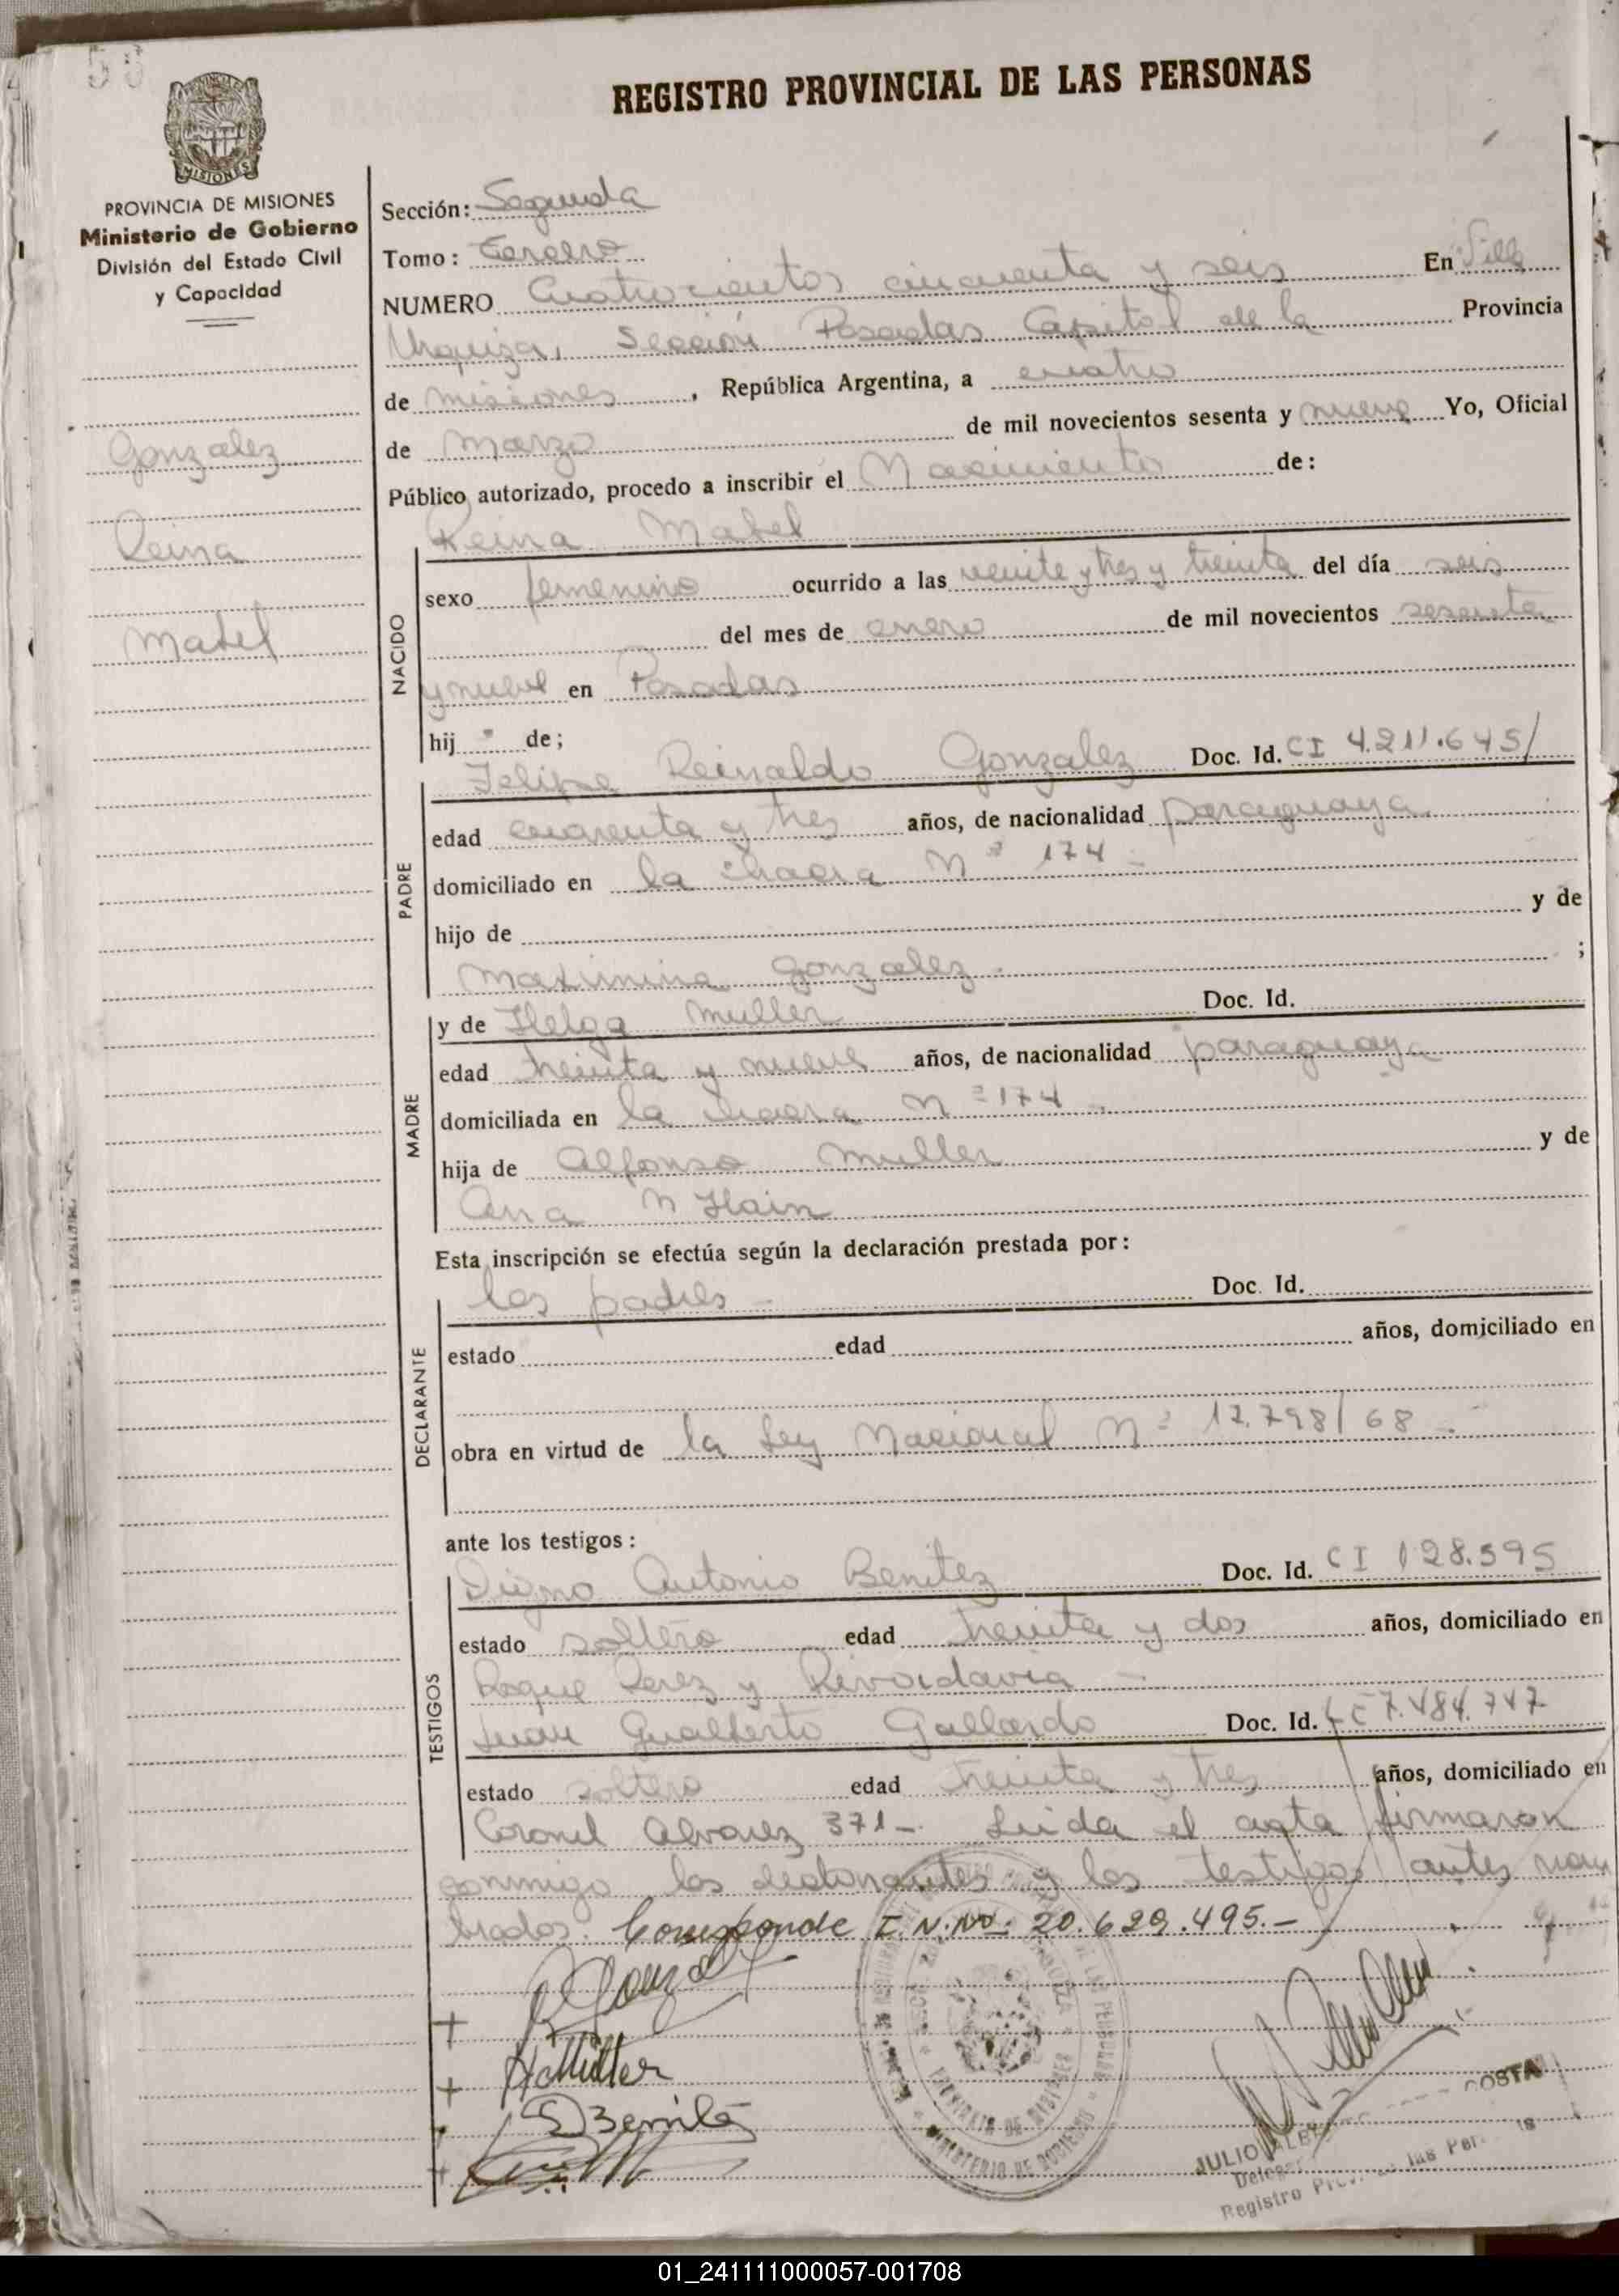 REGISTRO PROVINCIAL DE LAS PERSONAS
MISIONES
PROVINCIA DE MISIONES
Ministerio de Gobierno
División del Estado Civil
y Capacidad
Gonzalez
Reina
Mabel
Sección: Segunda
Tomo: Tercero
NUMERO Cuatrocientos cincuenta y seis En Villa
Urquiza, Sección Posadas Capital de la Provincia
de misiones, República Argentina, a cuatro
de marzo de mil novecientos sesenta y nueve Yo, Oficial
Público autorizado, procedo a inscribir el Nacimiento de:
Reina Mabel
NACIDO
sexo femenino ocurrido a las veinte y tres y treinta del día seis
del mes de enero de mil novecientos sesenta
y nueve en Posadas
hij de;
Felipe Reinaldo Gonzalez Doc. Id. CI 4.211.645/
PADRE
edad cuarenta y tres años, de nacionalidad paraguaya
domiciliado en la chacra Nº 174
hijo de y de
Maximina Gonzalez ;
MADRE
y de Helga Muller Doc. Id.
edad treinta y nueve años, de nacionalidad paraguaya
domiciliada en la chacra Nº 174
hija de Alfonso Muller y de
Ana N Hain
Esta inscripción se efectúa según la declaración prestada por:
los padres Doc. Id.
DECLARANTE
estado edad años, domiciliado en
obra en virtud de la Ley Nacional Nº 17.798/68
ante los testigos:
TESTIGOS
Digno Antonio Benitez Doc. Id. CI 128.595
estado soltero edad treinta y dos años, domiciliado en
Roque Perez y Rivadavia
Juan Gualberto Gallardo Doc. Id. LE 7.484.747
estado soltero edad treinta y tres años, domiciliado en
Coronel Alvarez 371 - Leida el acta firmaron
conmigo los declarantes y los testigos antes nom
brados. Corresponde I.N.Nº: 20.629.495.-
H Müller
D Benitez
MINISTERIO DE GOBIERNO
JULIO COSTA
Registro
01_241111000057-001708